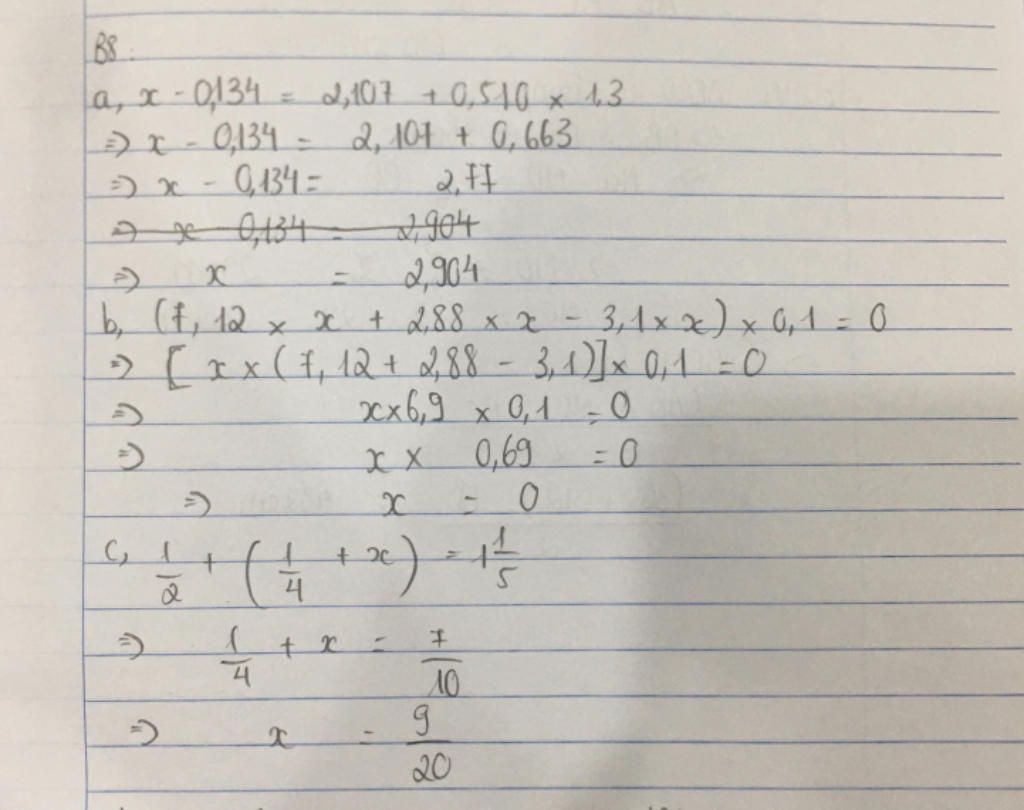 B8:
a, x - 0,134 = 2,107 + 0,510 × 1,3
=> x - 0,134 = 2,107 + 0,663
=> x - 0,134 = 2,77
=> x 0,134 = 2,904
=> x = 2,904
b, (7,12 × x + 2,88 × x - 3,1 × x) × 0,1 = 0
=> [x × (7,12 + 2,88 - 3,1)] × 0,1 = 0
=> x × 6,9 × 0,1 = 0
=> x × 0,69 = 0
=> x = 0
c, 1/2 + (1/4 + x) = 1 1/5
=> 1/4 + x = 7/10
=> x = 9/20